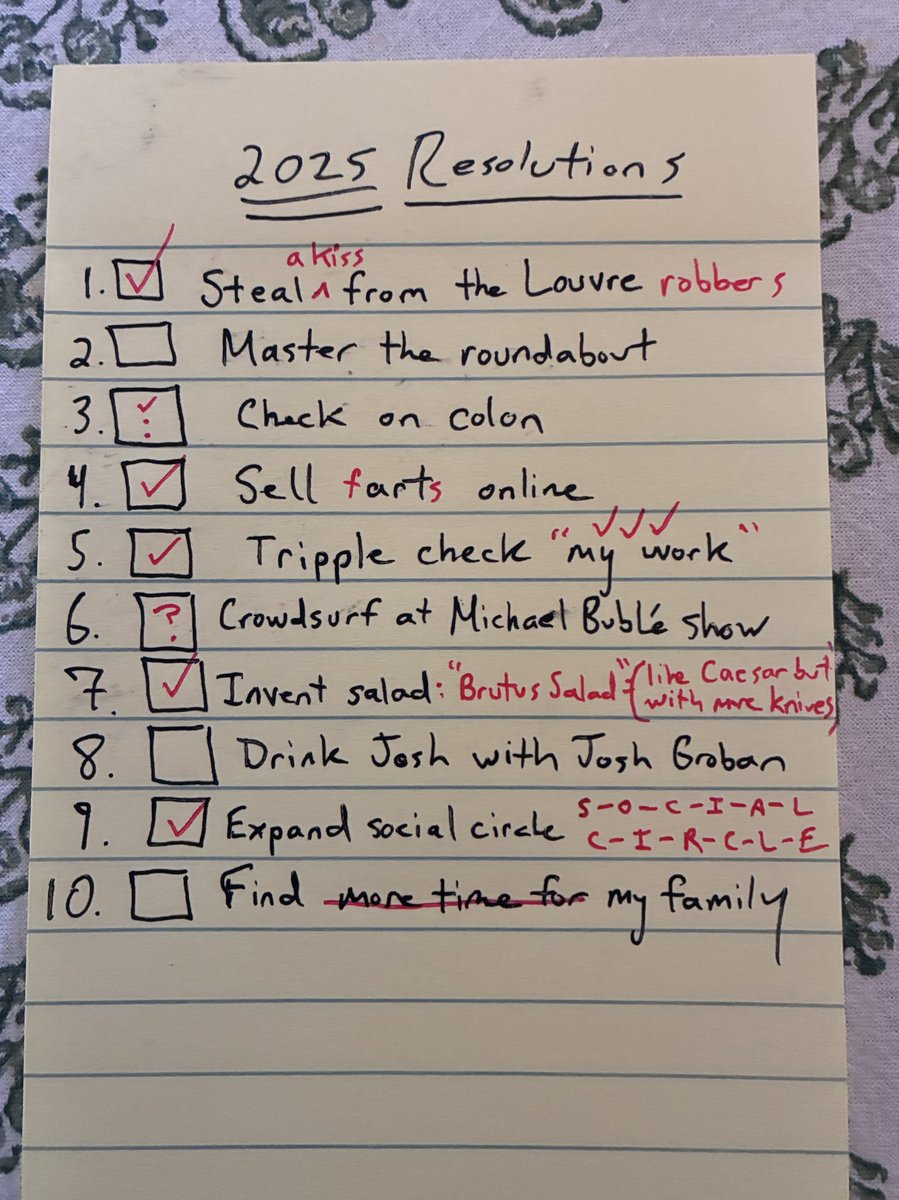 2025 Resolutions
1. Steal a kiss from the Louvre robbers
2. Master the roundabout
3. Check on colon
4. Sell farts online
5. Tripple check "my work"
6. ? Crowdsurf at Michael Bublé show
7. Invent salad: "Brutus Salad" (like Caesar but with more knives)
8. Drink Josh with Josh Groban
9. Expand social circle S-O-C-I-A-L
C-I-R-C-L-E
10. Find more time for my family